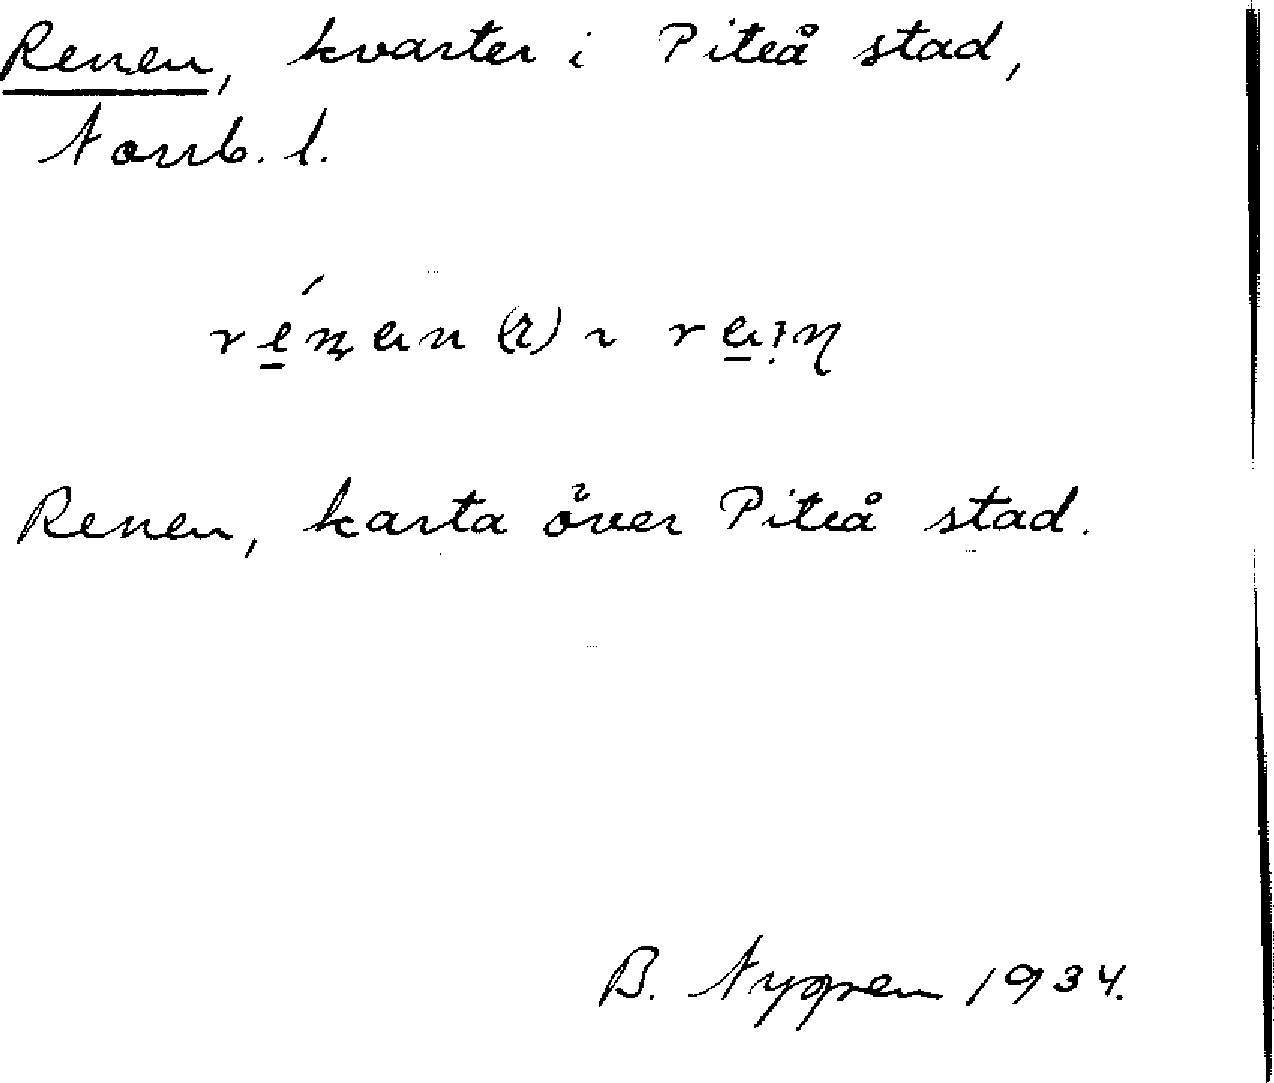 Renen, kvarter i Piteå stad,
Norrb. l.
Renen, karta över Piteå stad.
B. Nygren 1934.